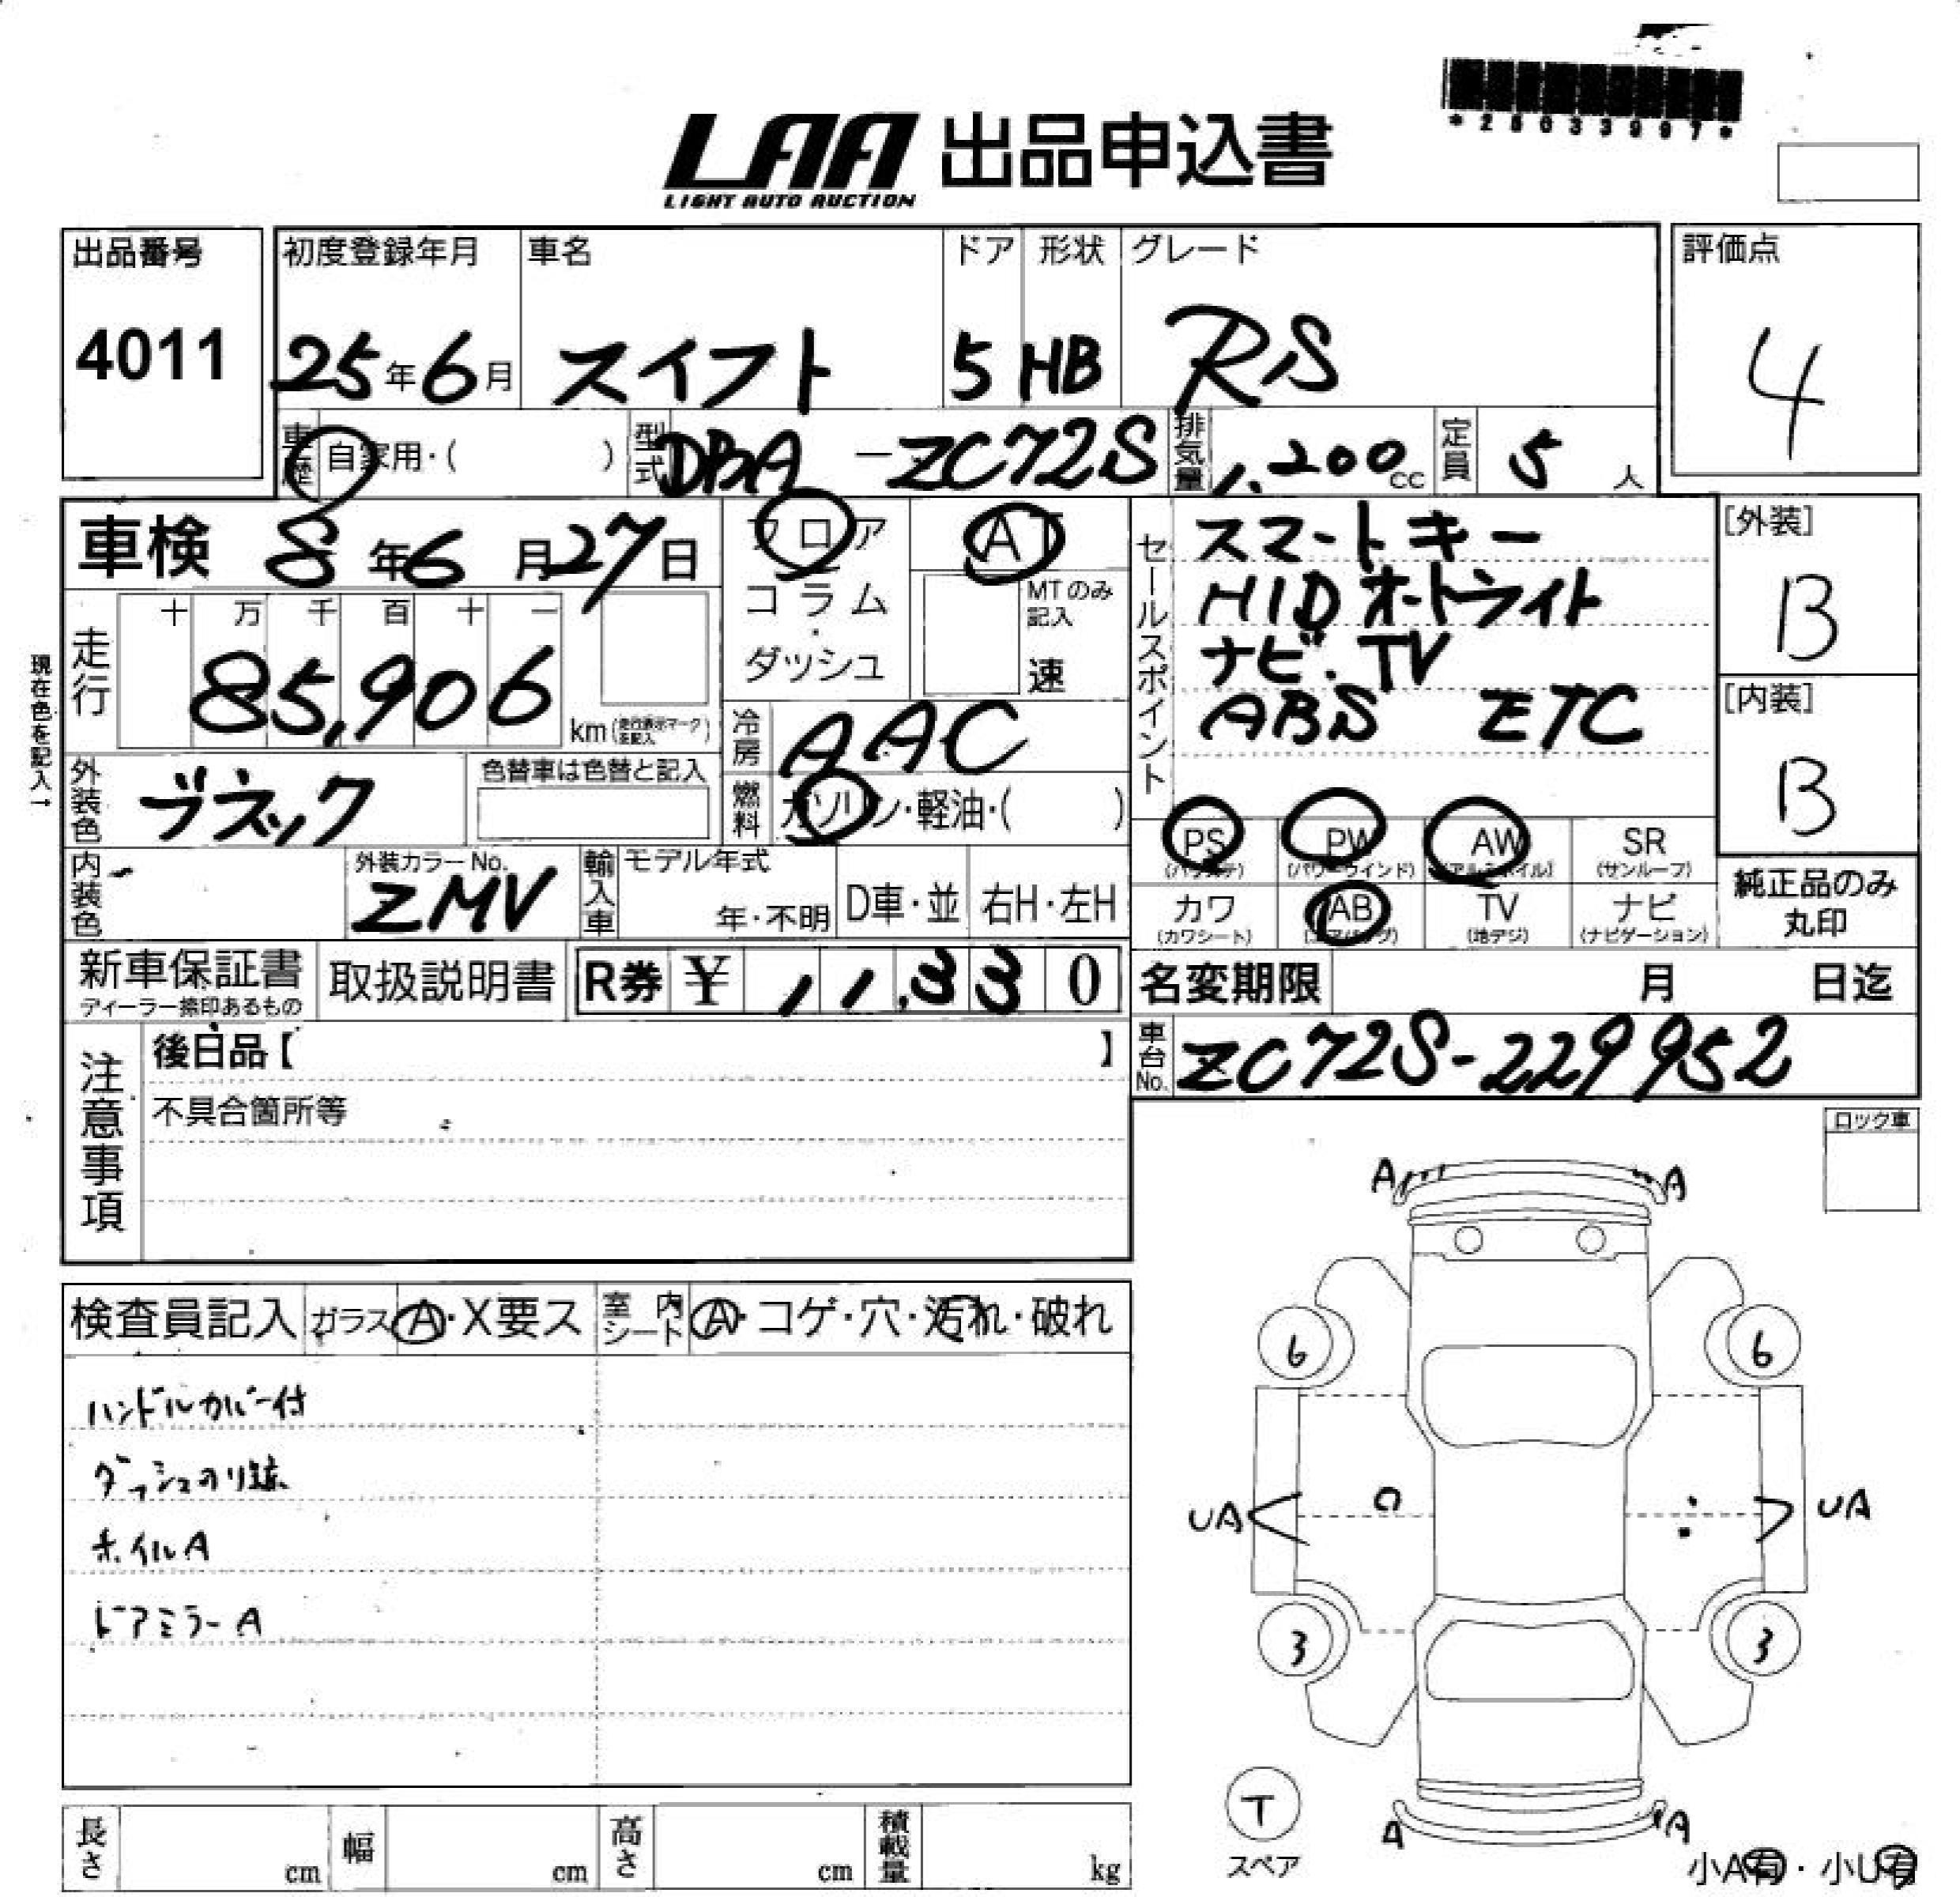 *25033997*
LAA 出品申込書
LIGHT AUTO AUCTION
出品番号 4011
初度登録年月 25年6月
車名 スイフト
ドア 5
形状 HB
グレード RS
評価点 4
車歴 自家用・( )
型式 DBA-ZC72S
排気量 1,200cc
定員 5人
車検 8年6月27日
フロア
コラム
・
ダッシュ
AT
MTのみ記入
速
セールスポイント
スマートキー
HIDオートライト
ナビ・TV
ABS ETC
[外装] B
[内装] B
現在色を記入→
走行 十 万 千 百 十 一
85,906 km(走行表示マーク記入)
冷房 AAC
外装色 ブラック
色替車は色替と記入
燃料 ガソリン・軽油・( )
PS (パワステ)
PW (パワーウインド)
AW (アルミホイル)
SR (サンルーフ)
カワ (カワシート)
AB (エアバッグ)
TV (地デジ)
ナビ (ナビゲーション)
純正品のみ丸印
内装色
外装カラーNo. ZMV
輸入車
モデル年式 年・不明
D車・並
右H・左H
新車保証書
ディーラー捺印あるもの
取扱説明書
R券 ¥ 11,330
名変期限 月 日迄
車台No. ZC72S-229952
注意事項
後日品【 】
不具合箇所等
ロック車
検査員記入 ガラス A・X要ス 室内シート A・コゲ・穴・汚れ・破れ
ハンドルカバー付
ダッシュのり跡
ホイルA
ドアミラーA
A A
6 6
UA UA
3 3
T
スペア
A A
小A有・小U有
長さ cm
幅 cm
高さ cm
積載量 kg